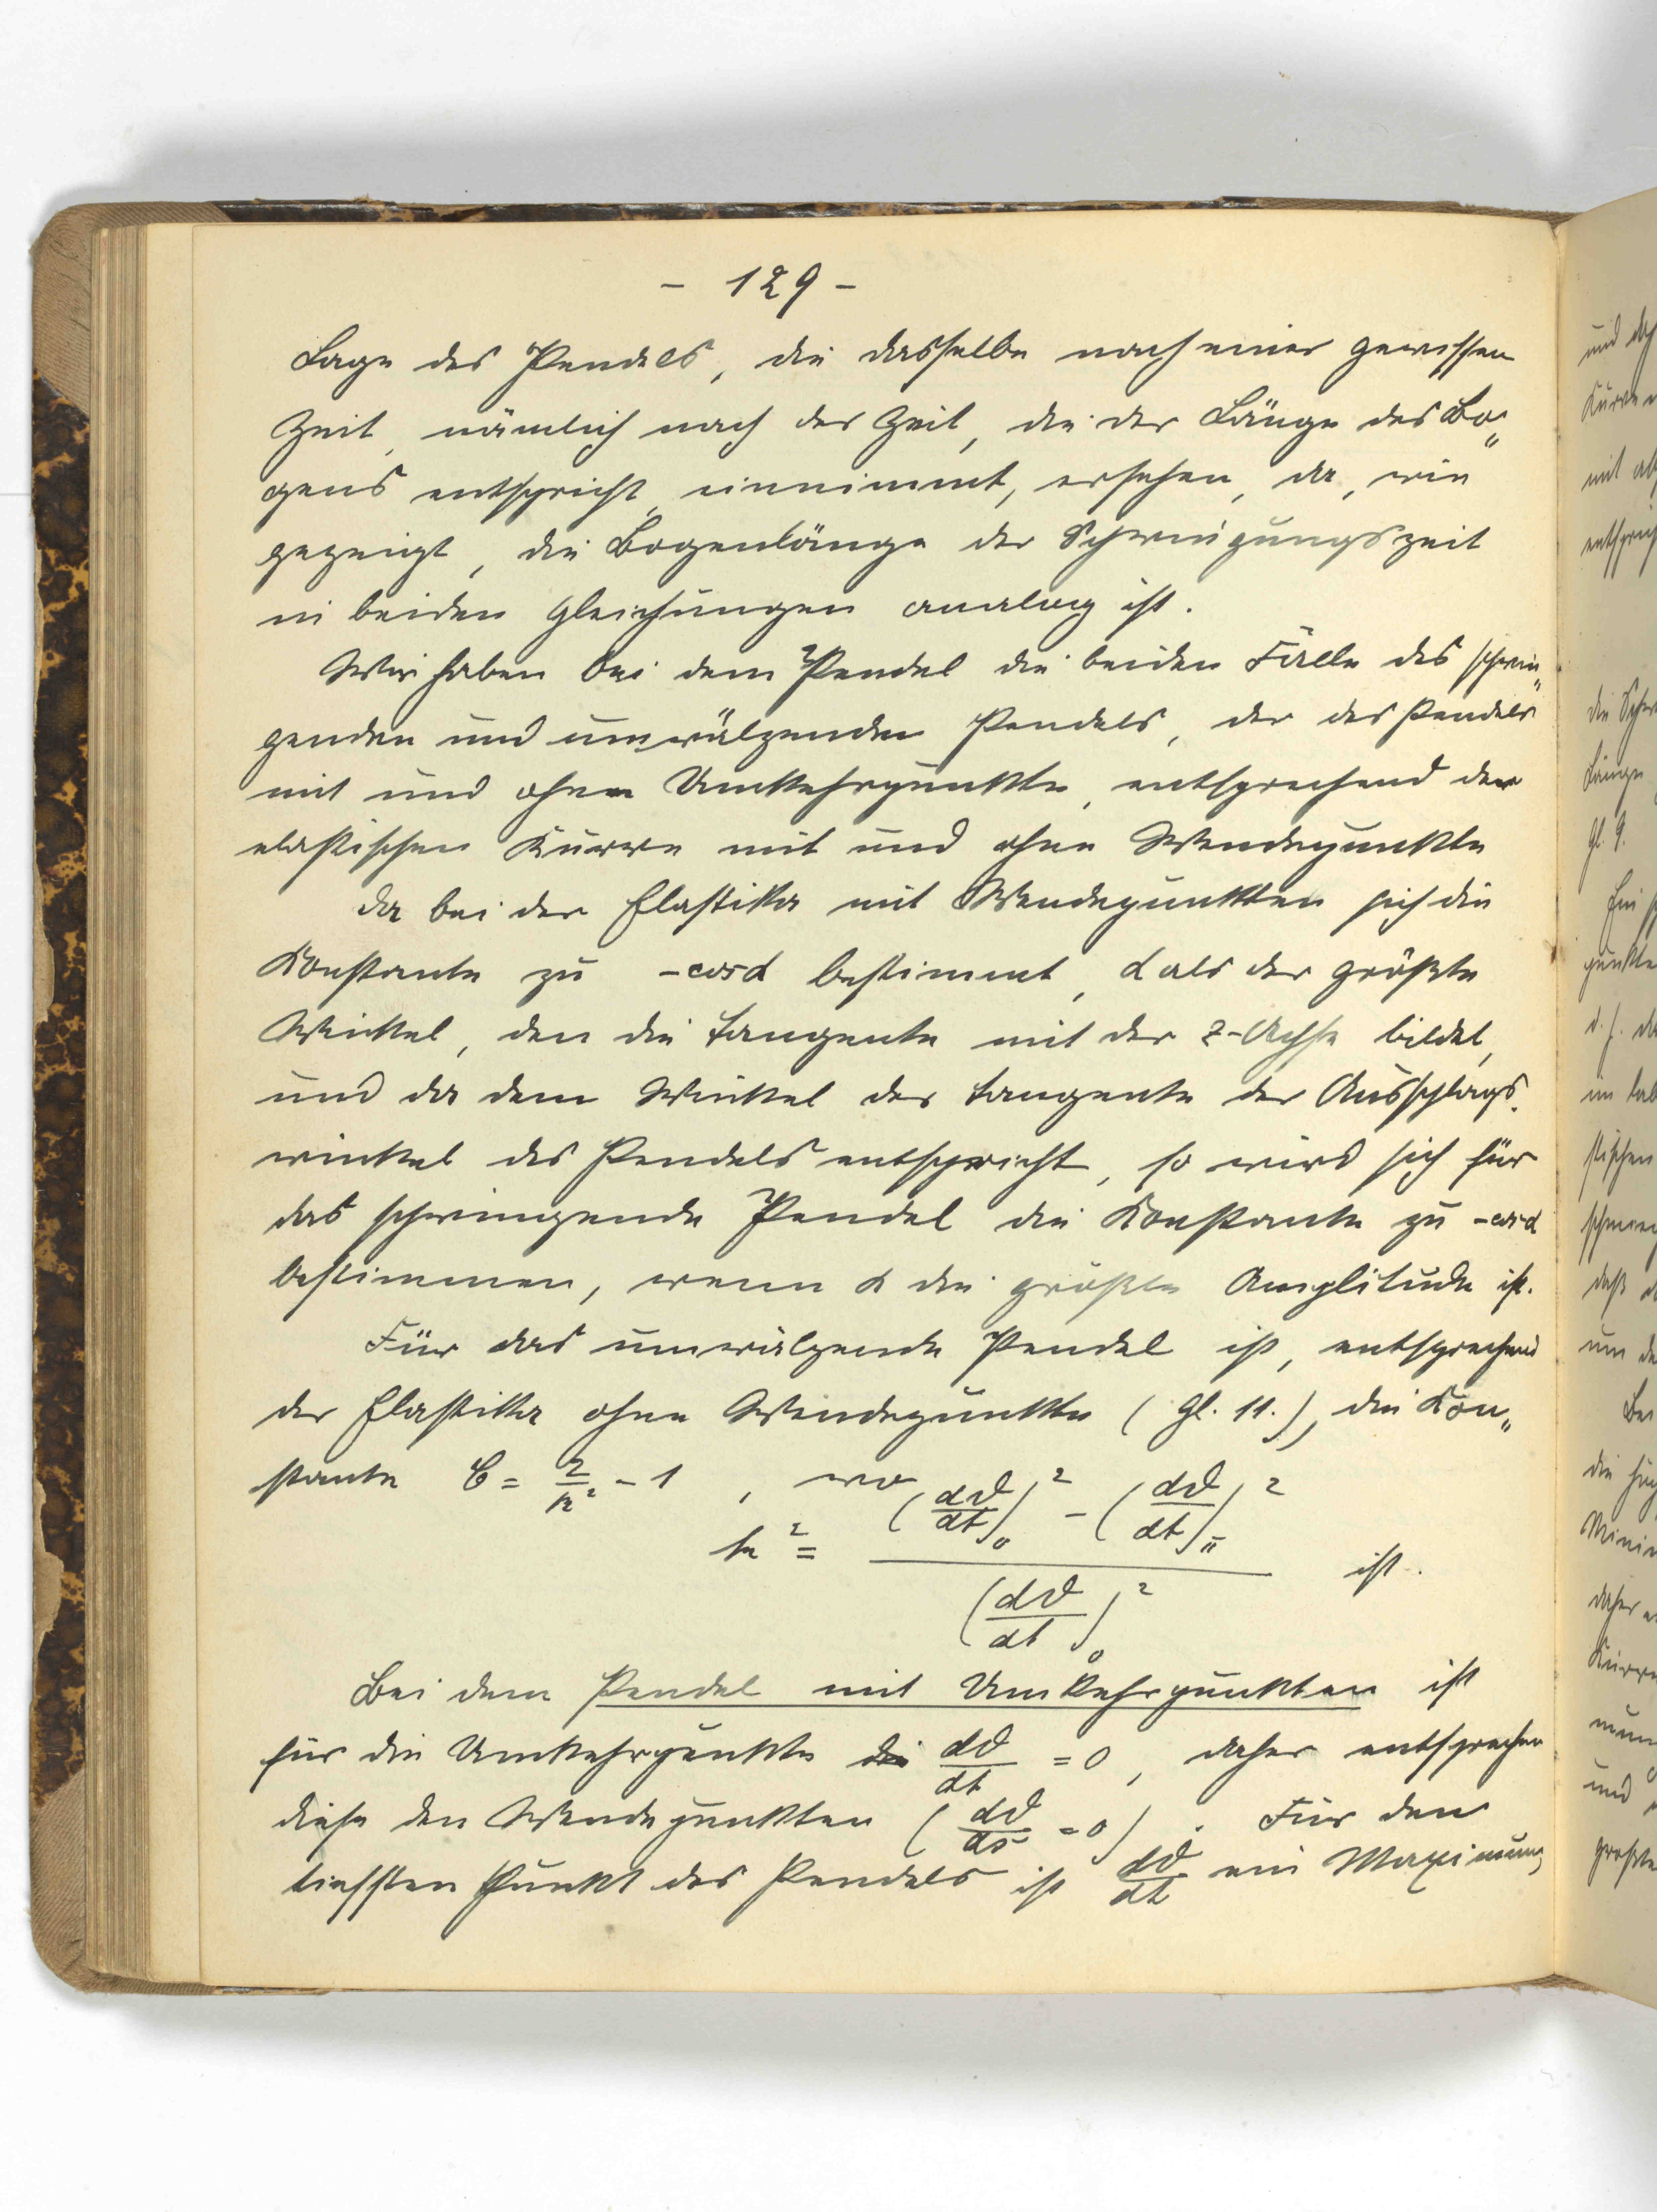 - 129 -
Lage des Pendels, die dasselbe nach einer gewissen
Zeit, nämlich nach der Zeit, die der Länge des Bo„
gens entspricht, einnimmt, ersehen, da, wie
gezeigt, die Bogenlänge der Schwingungszeit
in beiden Gleichungen analog ist.
Wir haben bei dem Pendel die beiden Fälle des schwin„
genden und umwälzenden Pendels, der des Pendels
mit und ohne Umkehrpunkte, entsprechend der
elastischen Kurve mit und ohne Wendepunkte
Da bei der Elastika mit Wendepunkten sich die
Konstante zu -cos α bestimmt, α als der größte
Winkel, den die Tangente mit der z-Achse bildet,
und da dem Winkel der Tangente der Ausschlags-
winkel des Pendels entspricht, so wird sich für
das schwingende Pendel die Konstante zu -cos α
bestimmen, wenn α die größte Amplitude ist.
Für das umwälzende Pendel ist, entsprechend
der Elastika ohne Wendepunkte (Gl. 11.), die Kon„
stante C = 2/k² - 1, wo
k² = ((dϑ/dt)₀² - (dϑ/dt)π²) / (dϑ/dt)₀² ist.
Bei dem Pendel mit Umkehrpunkten ist
für die Umkehrpunkte die dϑ/dt = 0, daher entsprechen
diese den Wendepunkten (dϑ/ds = 0). Für den
tiefsten Punkt des Pendels ist dϑ/dt ein Maximum,
und
Kurven
mit
Länge
Gl. 9.
Ein
stischen
daß
um
Bei
die
daher
und
größte